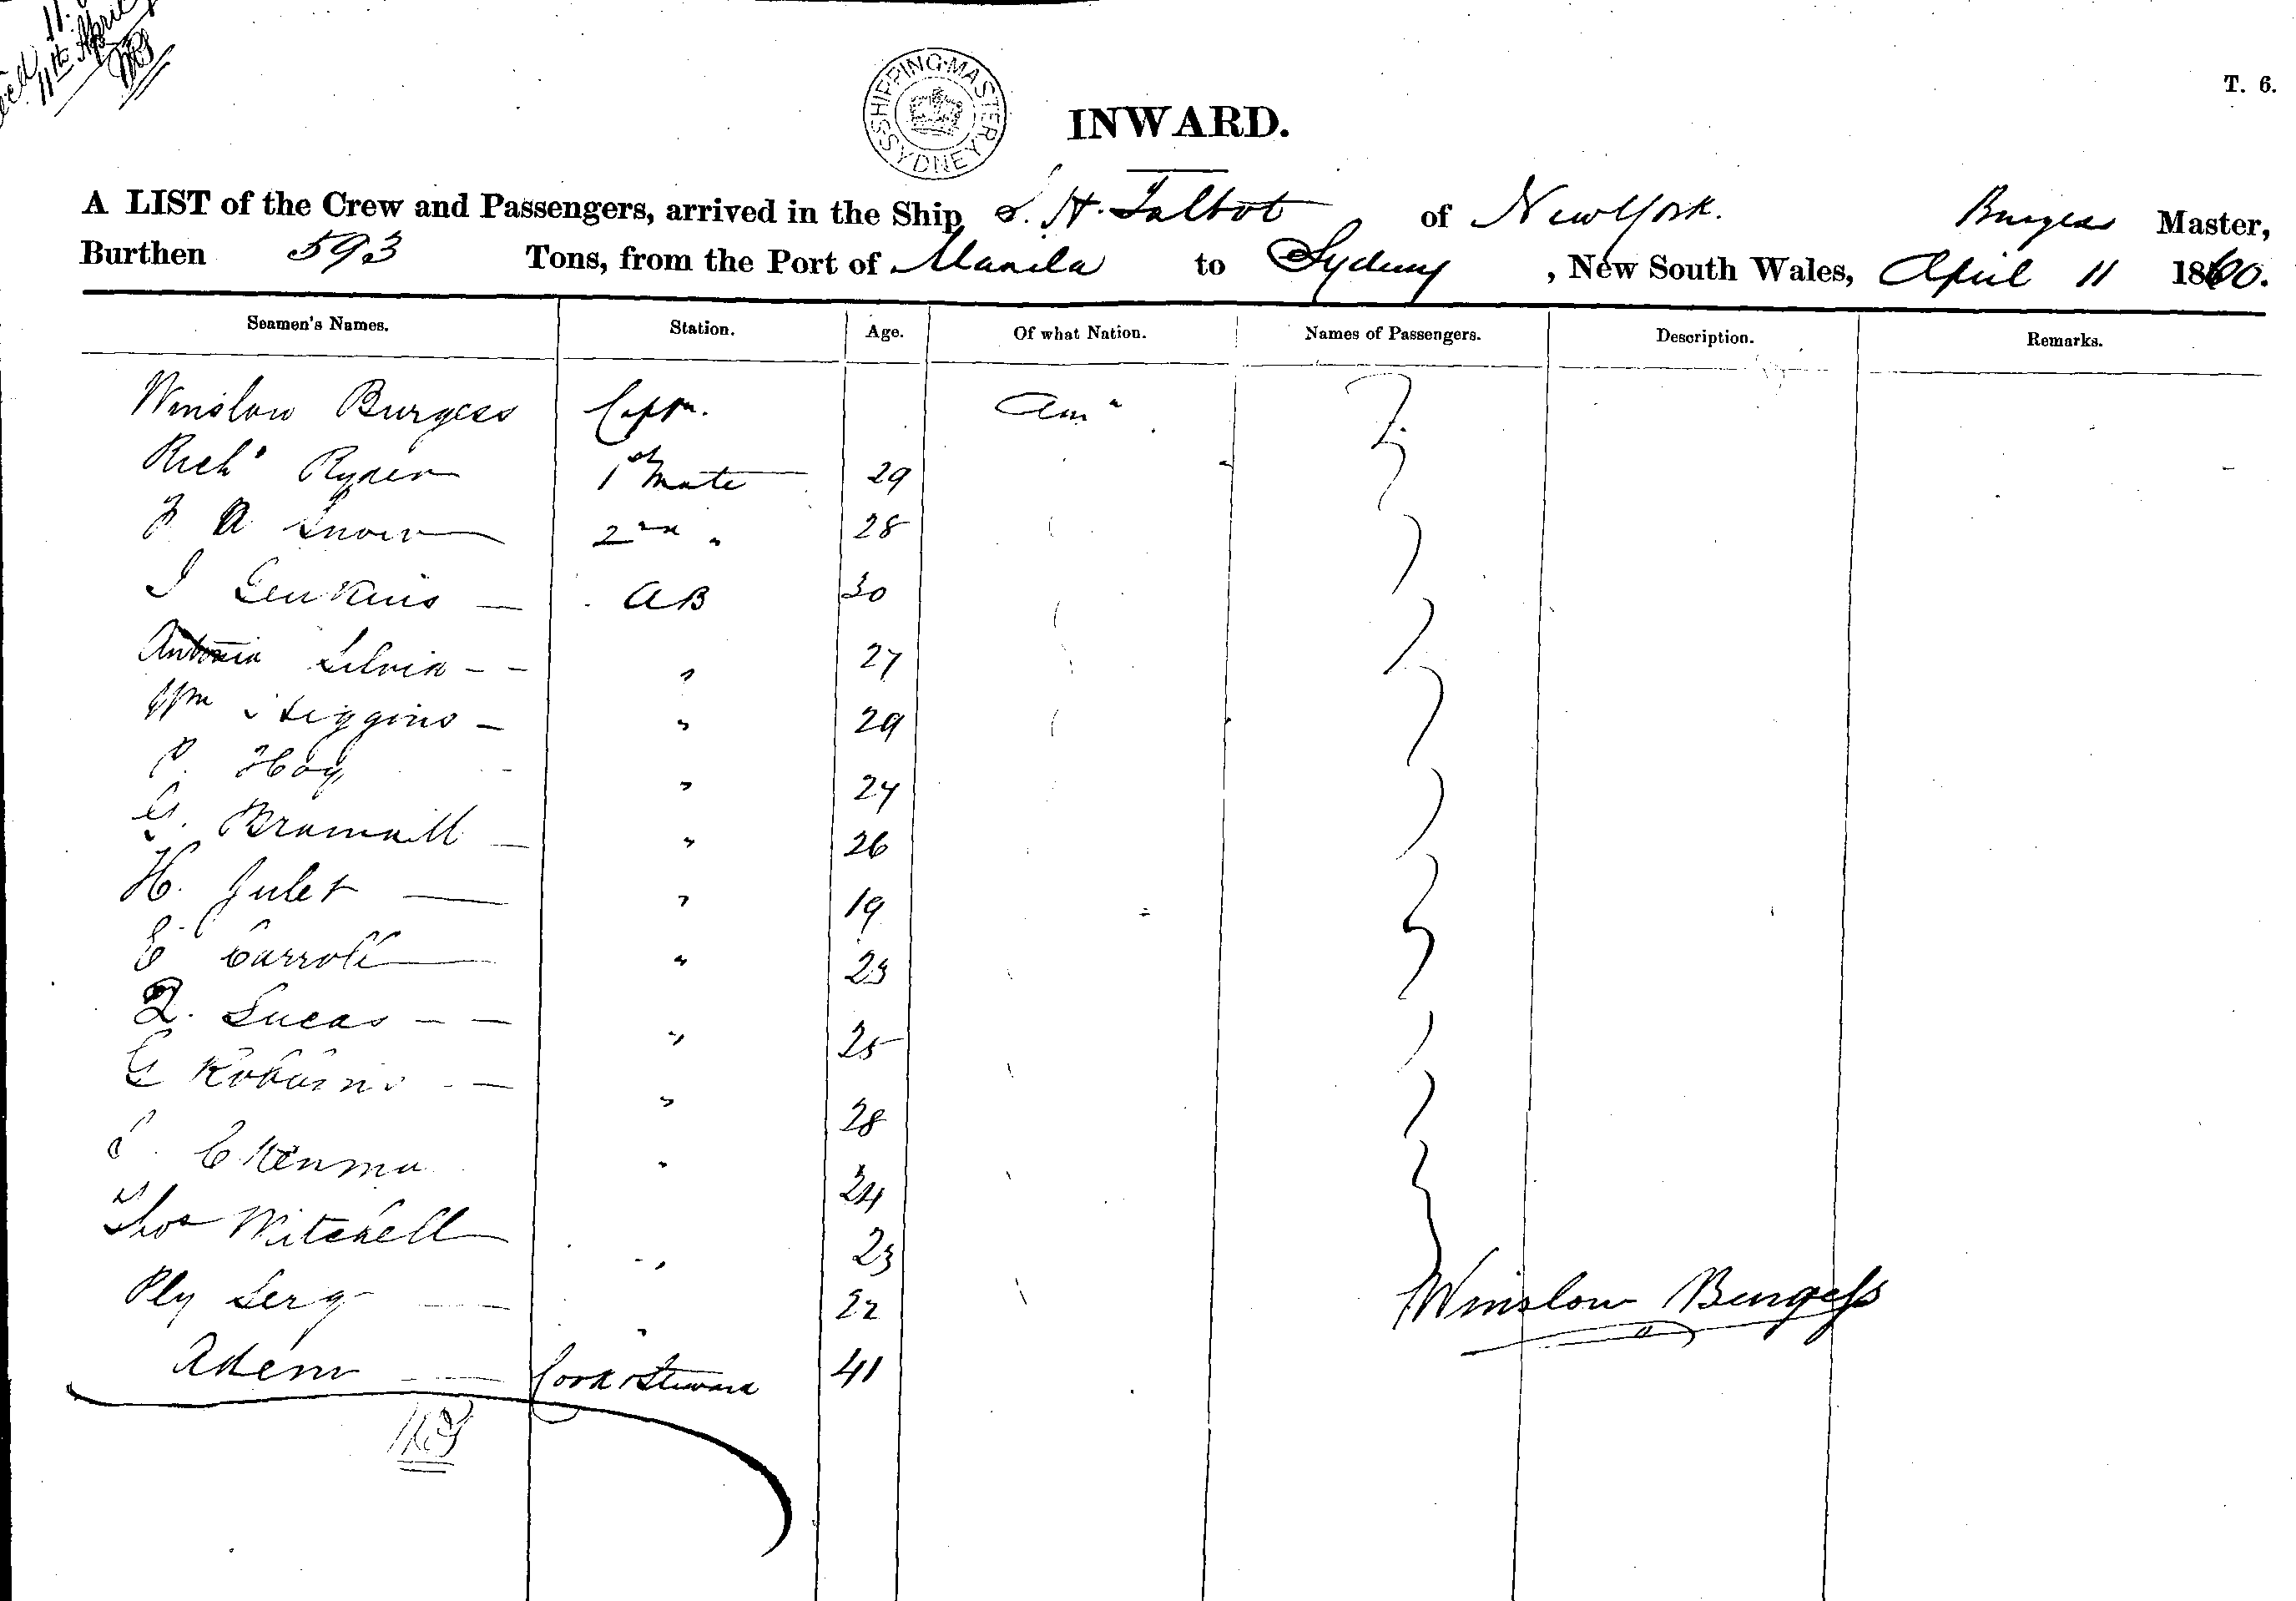 11th April
SHIPPING MASTER
SYDNEY
T. 6.
INWARD.
A LIST of the Crew and Passengers, arrived in the Ship S. H. Talbot of New York. Burgess Master,
Burthen 593 Tons, from the Port of Manila to Sydney, New South Wales, April 11 1860.
Seamen's Names. Station. Age. Of what Nation. Names of Passengers. Description. Remarks.
Winslow Burgess Captn. Amn
Richd Ryder 1st Mate 29
F A Snow 2nd " 28
J Jenkins — AB 30
Antonia Silvia - - " 27
Wm Higgins — " 29
P. Hay " 24
G. Bramall — " 26
H. Julet — " 19
E Carroll — " 23
Lucas - - " 25
G Robbins - — " 28
" 24
Thos Mitchell " 23
22
Winslow Burgess
— Cook & Steward 41